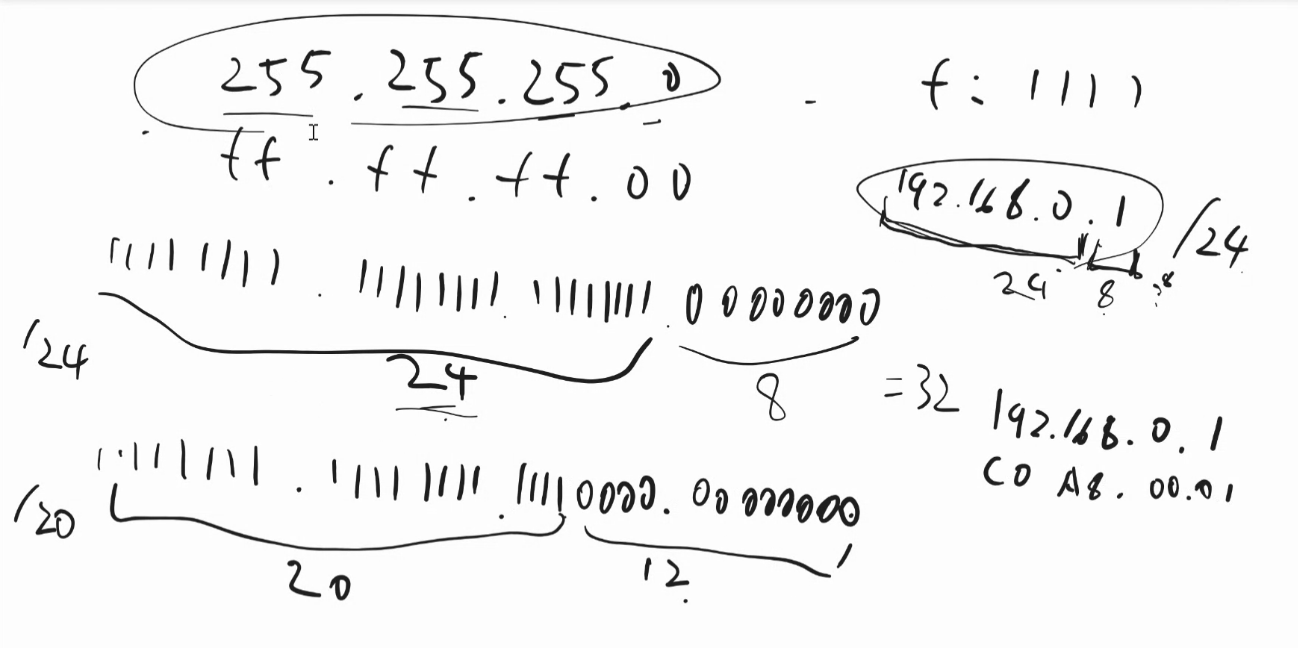 255.255.255.0
ff.ff.ff.00
f: 1111
192.168.0.1 /24
24 8
11111111.11111111.11111111.00000000
/24
24
8
=32
192.168.0.1
C0 A8.00.01
11111111.11111111.11110000.00000000
/20
20
12